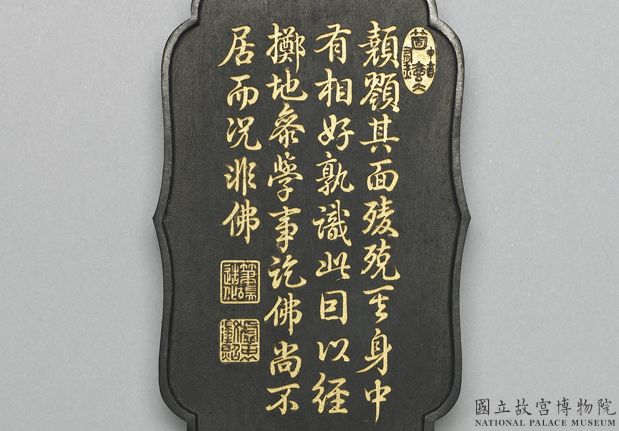 其面身中
有相好孰識此囙以經
擲地參學事訖佛尚不
居而况非佛
國立故宮博物院
NATIONAL PALACE MUSEUM